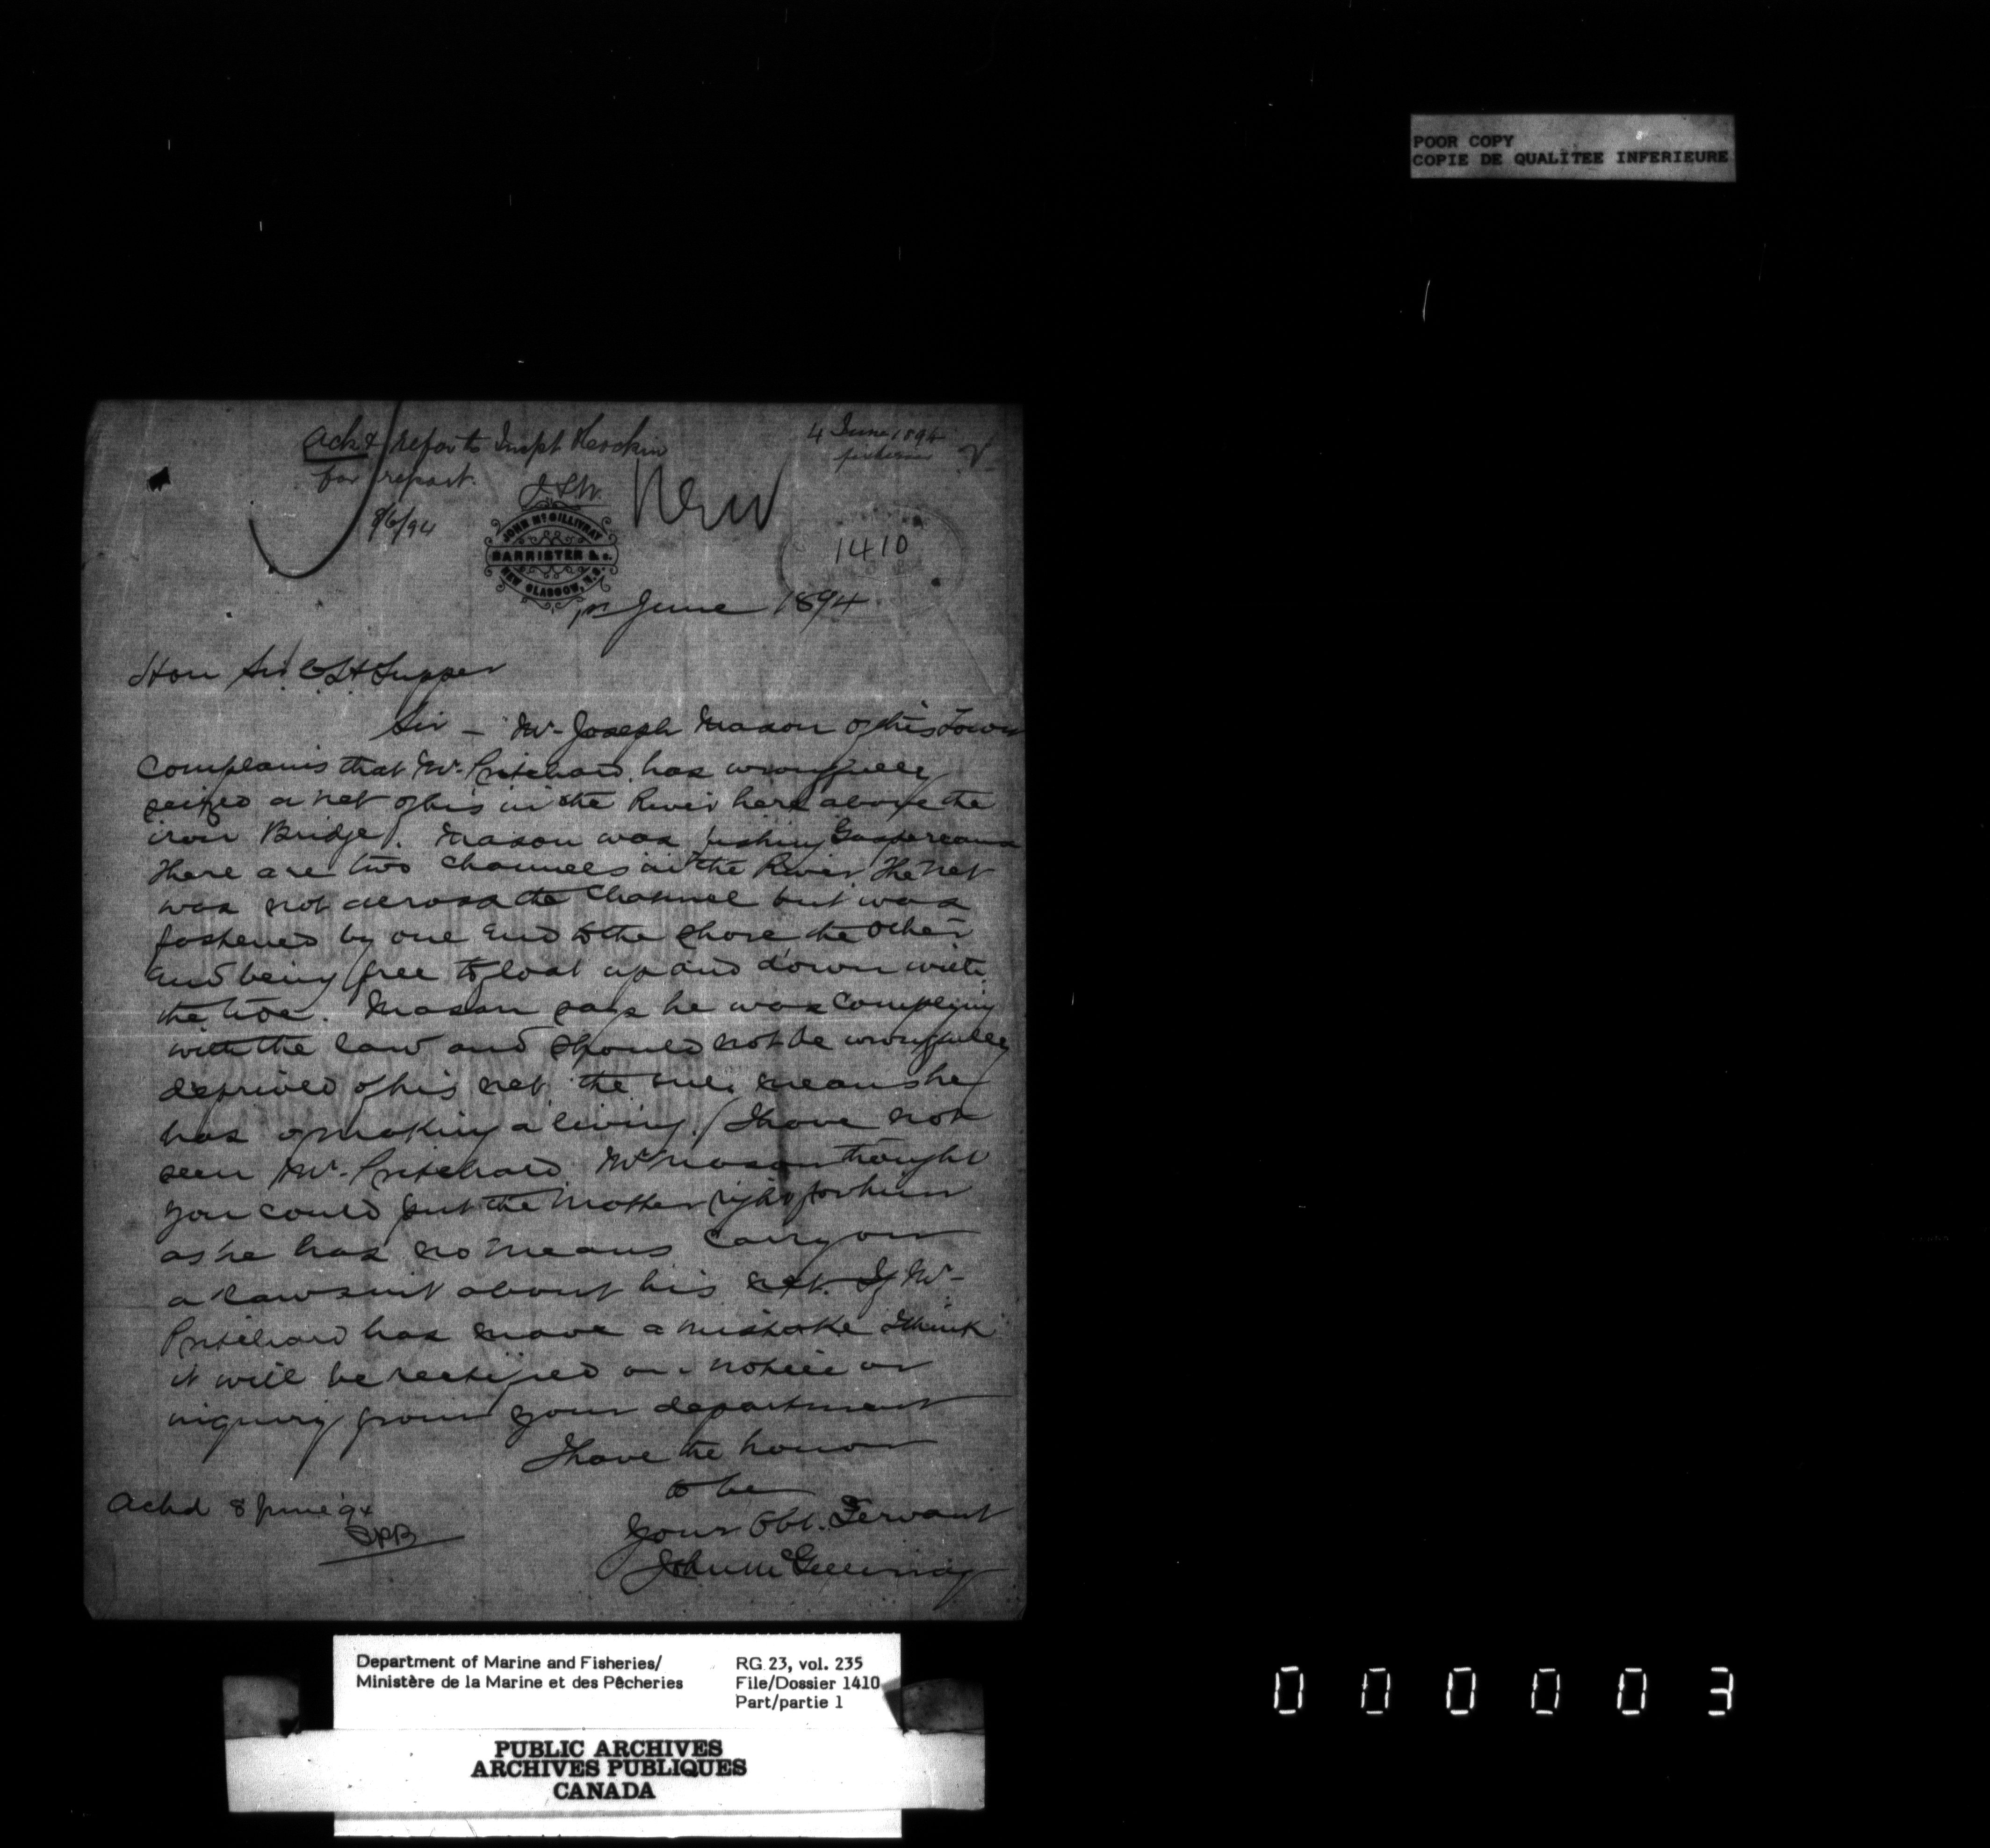 POOR COPY
COPIE DE QUALITEE INFERIEURE
Ack & refer to Inspt Hockin
for report.
8/6/94
4 June 1894
fisheries
New
JOHN McGILLIVRAY
BARRISTER &c.
NEW GLASGOW, N.S.
1410
1st June 1894
Hon Sir C H Tupper
Sir - Mr Joseph Mason of this Town
complains that Mr Pritchard has wrongfully
seized a net of his in the River here above the
iron Bridge. Mason was fishing Gaspereaux
There are two channels in the River The net
was not across the channel but was
fastened by one end to the shore the other
end being free to float up and down with
the tide. Mason says he was complying
with the law and should not be wrongfully
deprived of his net the means he
has of making a living. I have not
seen Mr Pritchard. Mr Mason thought
you could put the matter right for him
as he has no means carry on
a lawsuit about his net. If Mr
Pritchard has made a mistake I think
it will be rectified on notice or
inquiry from your department
I have the honour
to be
Your Obt. Servant
John McGillivray
Ackd 8 June 94
Department of Marine and Fisheries/
Ministère de la Marine et des Pêcheries
RG 23, vol. 235
File/Dossier 1410
Part/partie 1
PUBLIC ARCHIVES
ARCHIVES PUBLIQUES
CANADA
000003